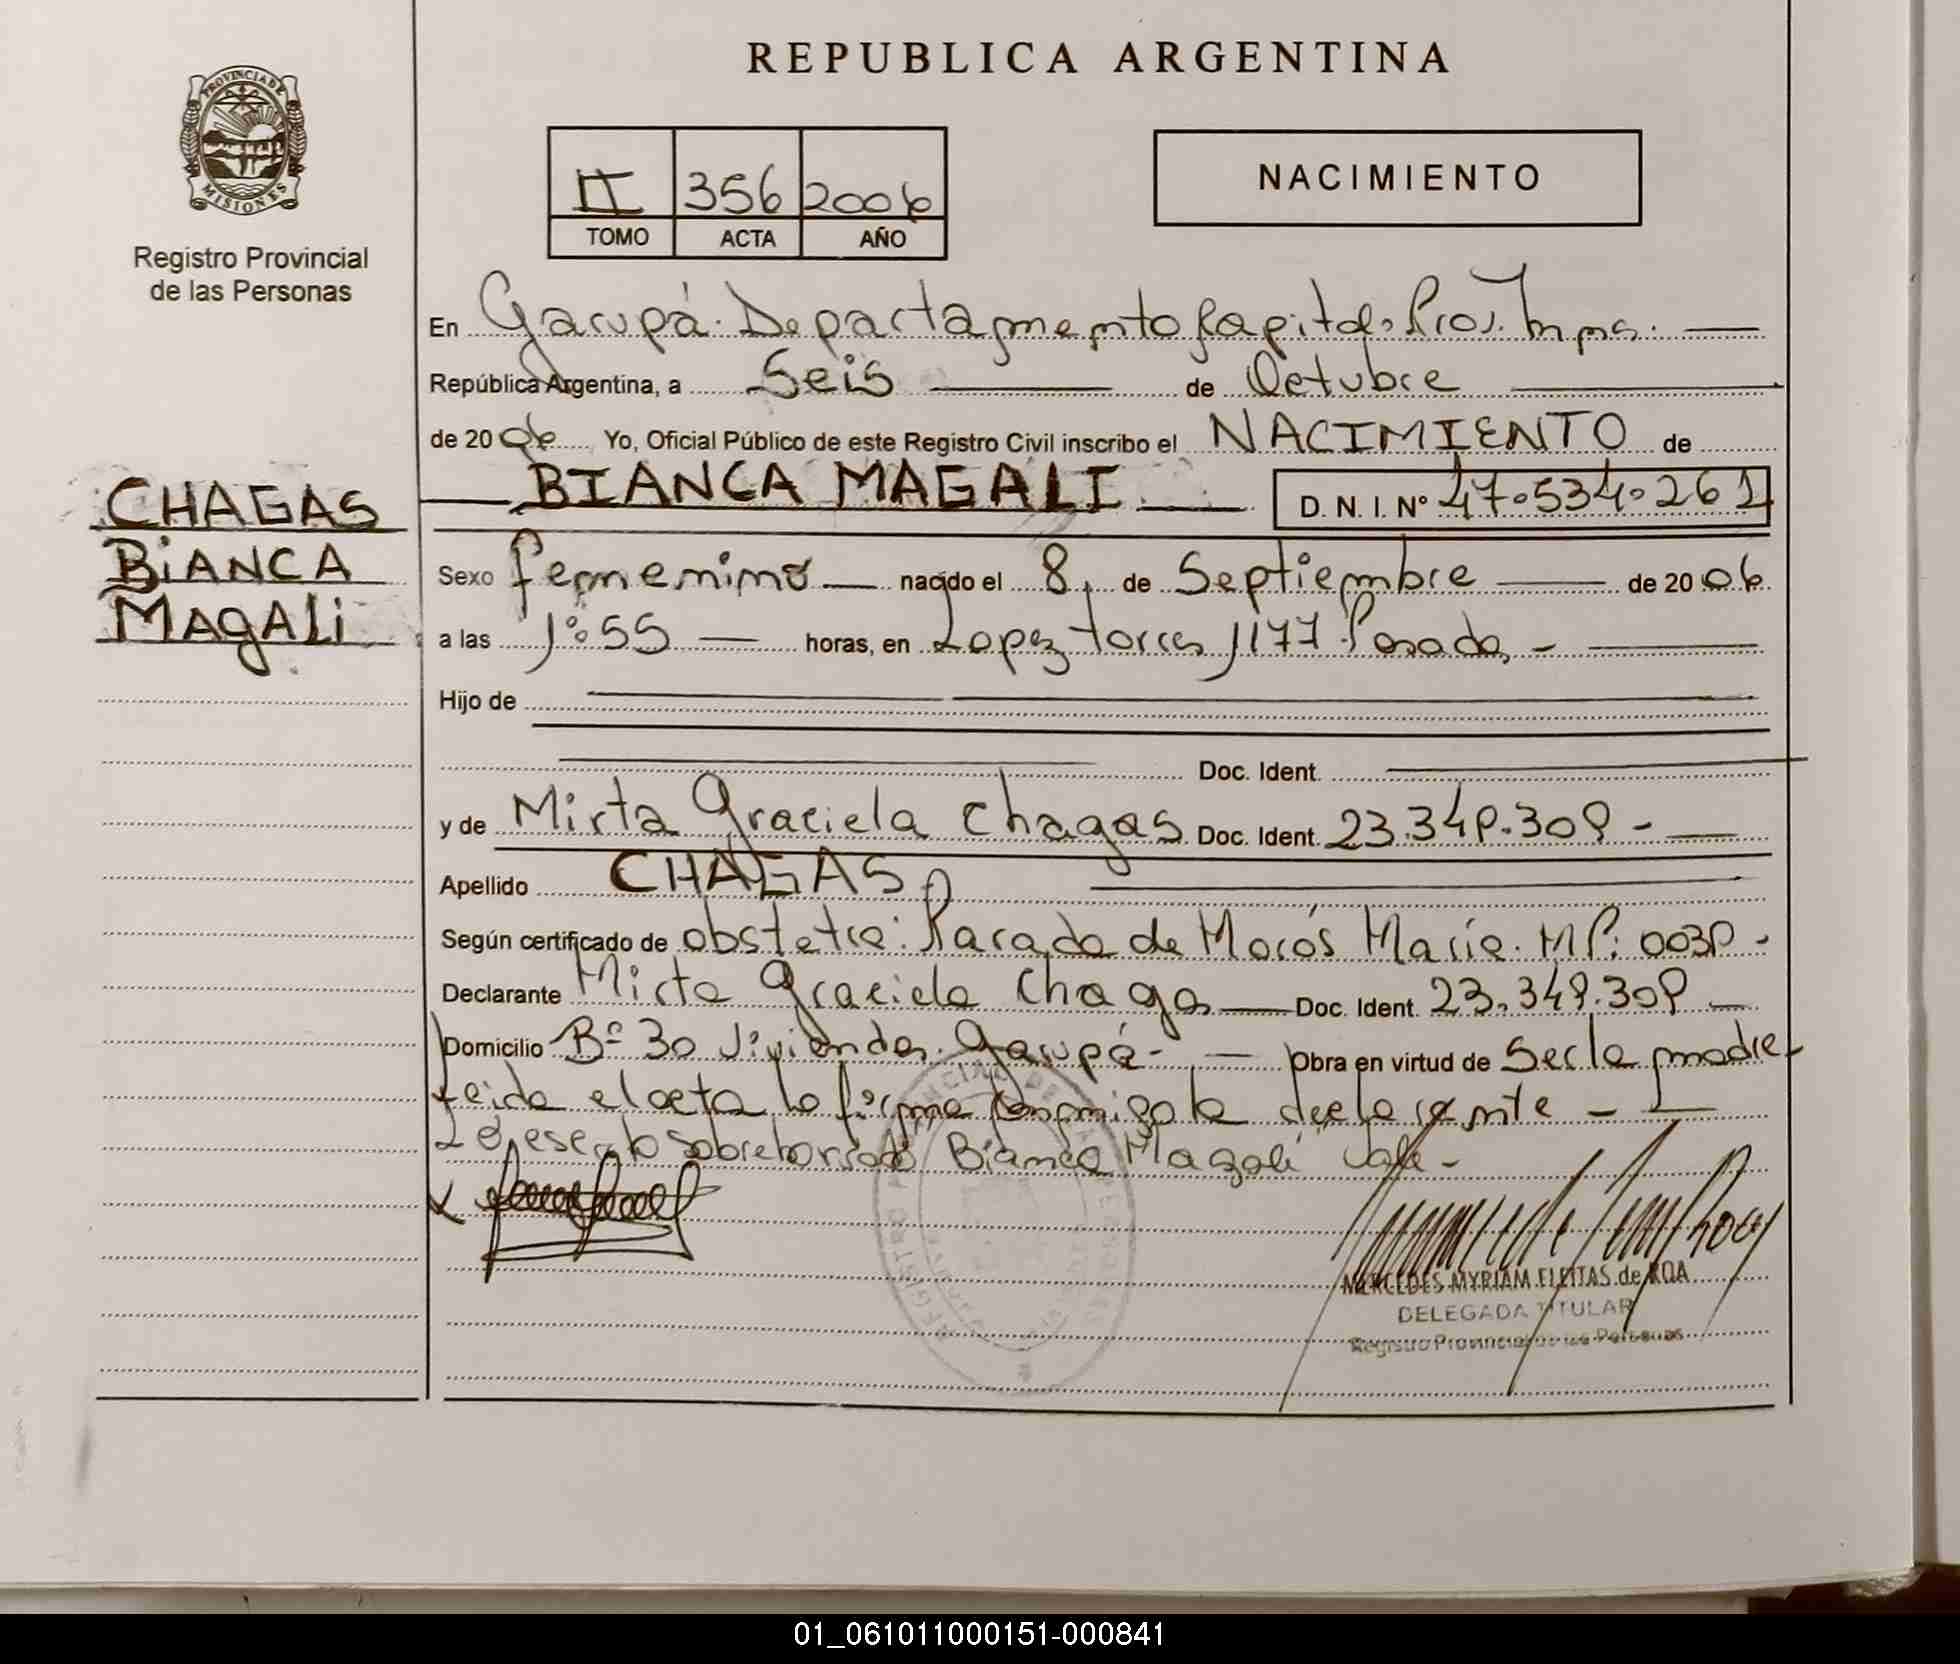 REPUBLICA ARGENTINA
PROVINCIA DE MISIONES
Registro Provincial
de las Personas
II 356 2006
TOMO ACTA AÑO
NACIMIENTO
En Garupá. Departamento Capital. Prov. Mnes.
República Argentina, a Seis de Octubre
de 2006 Yo, Oficial Público de este Registro Civil inscribo el NACIMIENTO de
BIANCA MAGALI D. N. I. Nº 47.534.261
CHAGAS
BiANCA
MAGALi
Sexo femenino nacido el 8 de Septiembre de 2006.
a las 1:55 horas, en Lopez Torres 1177 Posadas
Hijo de
Doc. Ident.
y de Mirta Graciela Chagas Doc. Ident. 23.349.309 -
Apellido CHAGAS
Según certificado de obstetra: Parada de Marcós María. MP: 0039 -
Declarante Mirta Graciela Chagas Doc. Ident. 23.349.309
Domicilio Bº 30 Viviendas. Garupá - Obra en virtud de Ser la madre
leida el acta la firma conmigo la declarante -
sobreborrado Bianca Magali Vale -
MERCEDES MYRIAM FLEITAS de ROA
DELEGADA TITULAR
Registro Provincial de las Personas
01_061011000151-000841